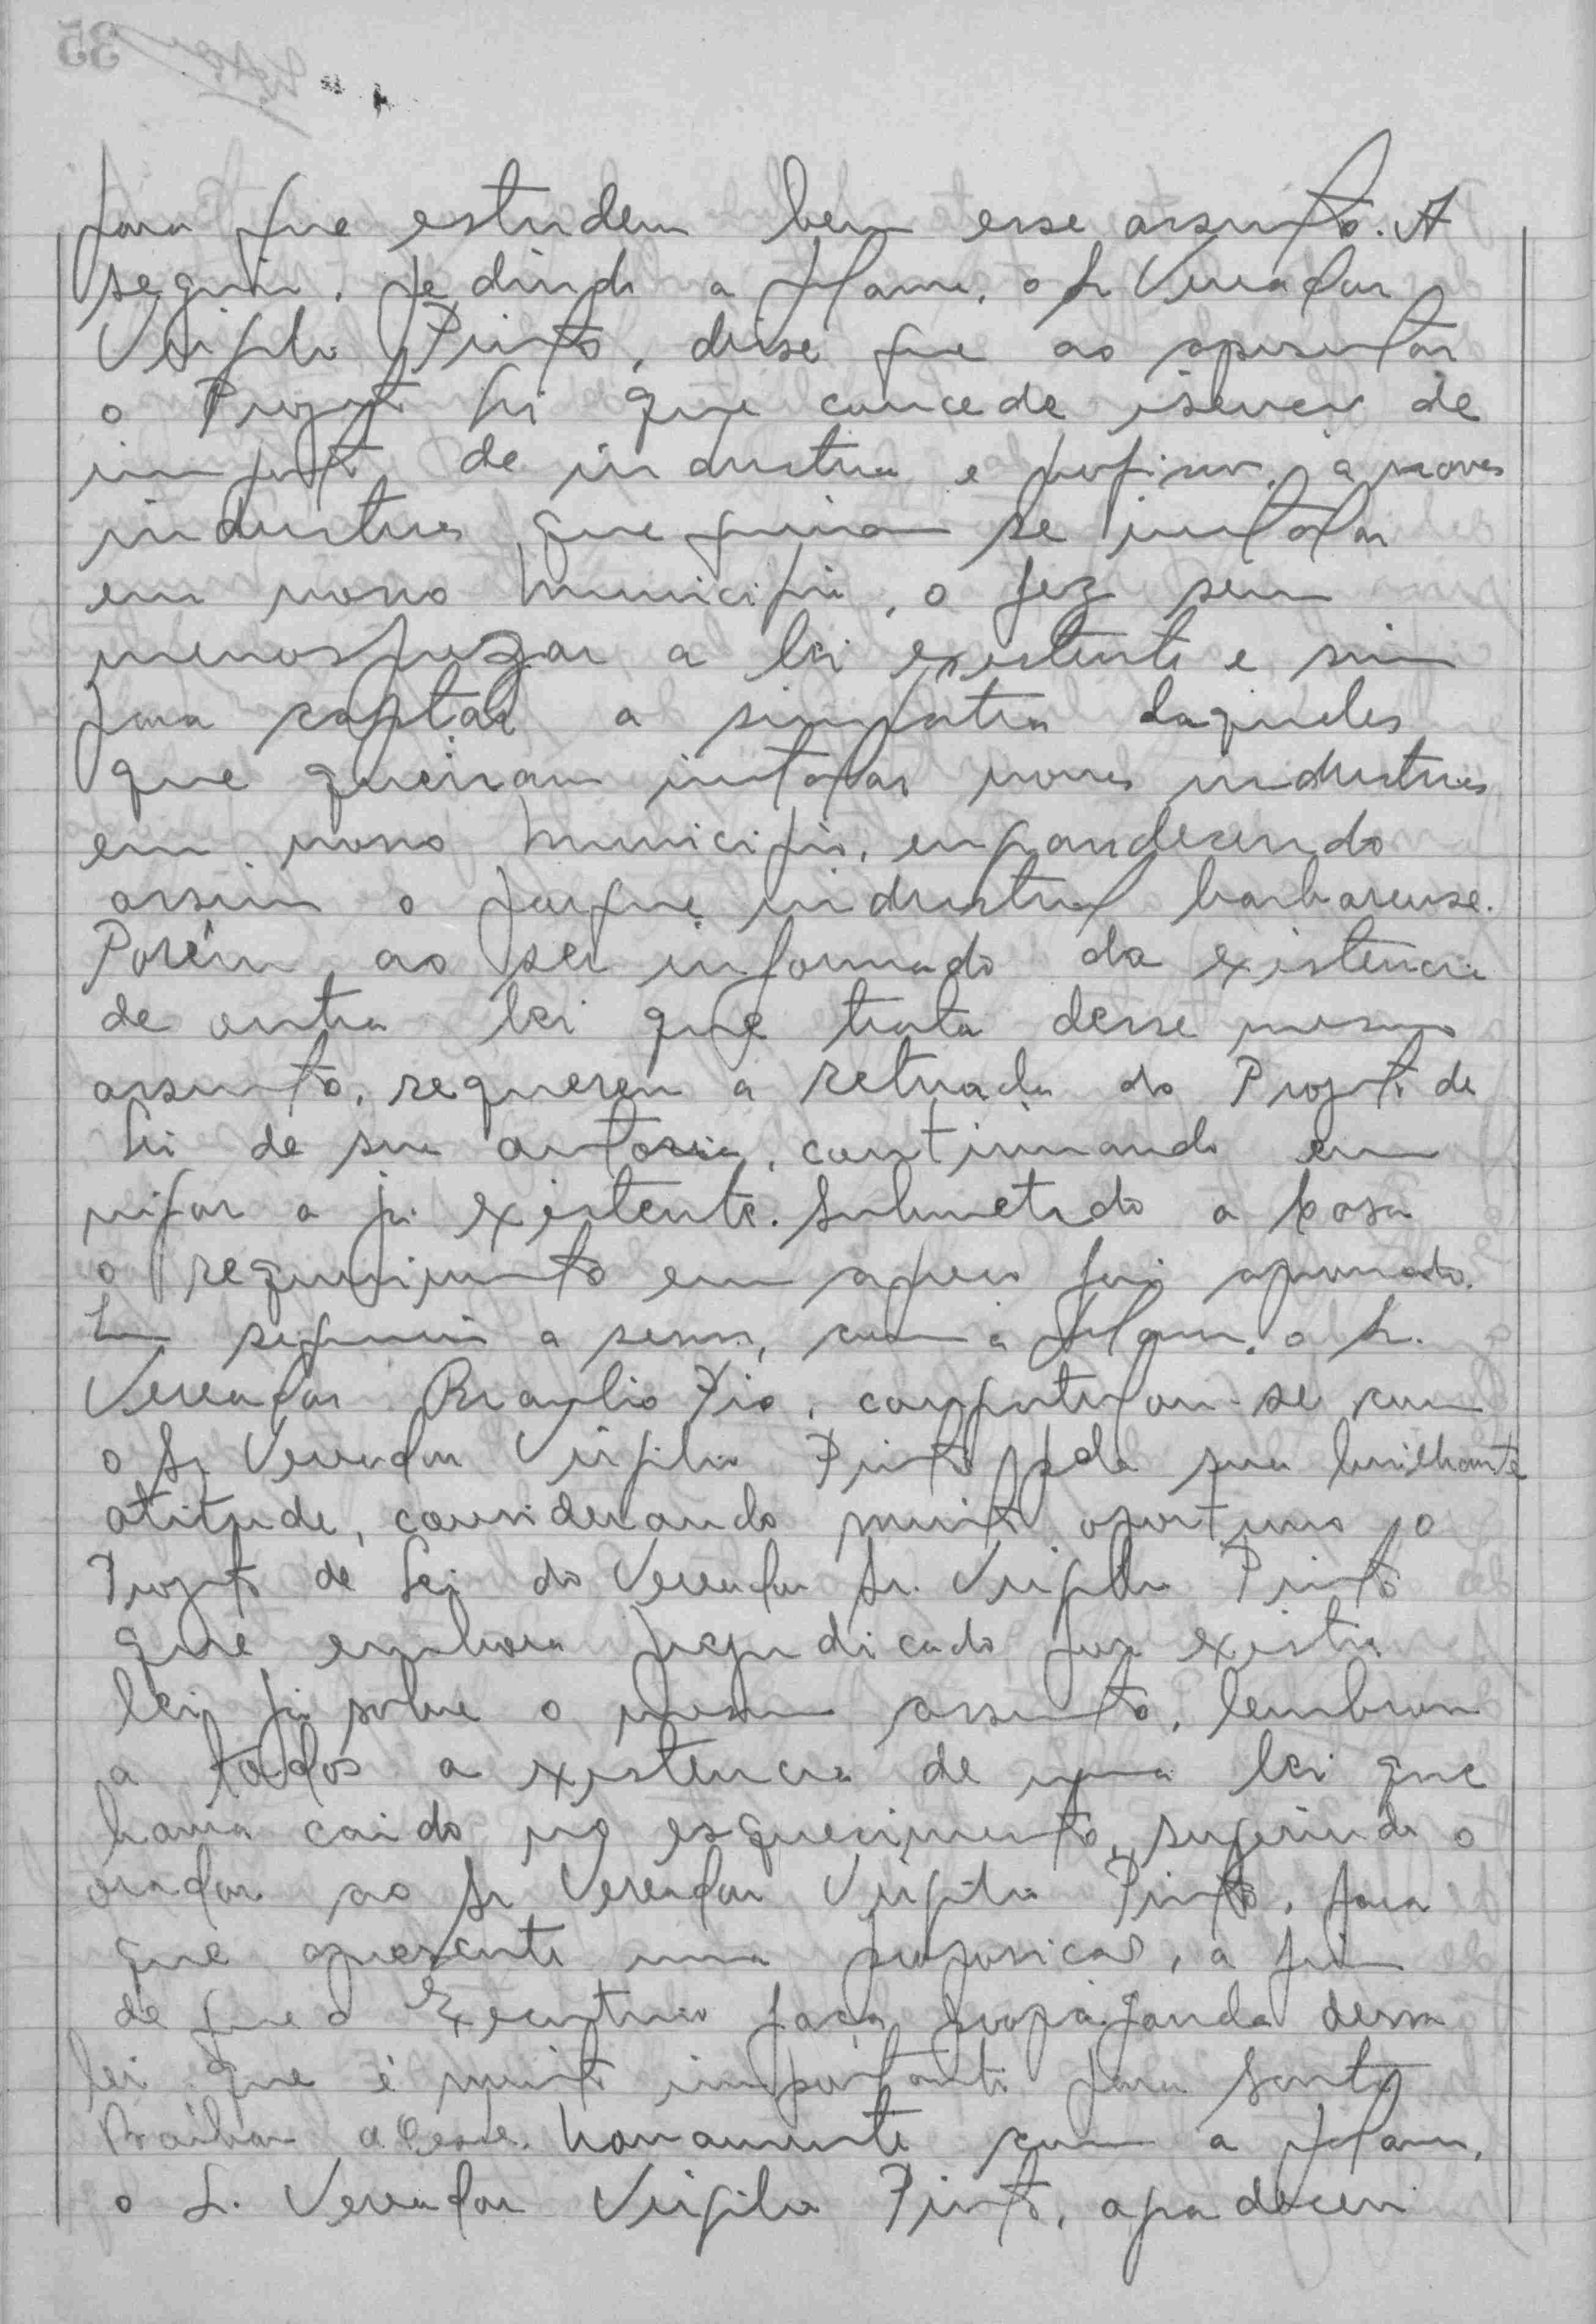 para que estudem bem esse assunto. A
seguir, pedindo a palavra, o Sr Vereador
Virgilio Pinto, disse que ao apresentar
o Projeto Lei que concede isenção de
imposto de industria e profissão, a novas
industrias que queiram se instalar
em nosso municipio, o fez sem
menosprezar a lei existente e sim
para captar a simpatia daqueles
que queiram instalar novas industrias
em nosso municipio, engrandecendo
assim o parque industrial barbarense.
Porém, ao ser informado da existencia
de outra lei que trata desse mesmo
assunto, requereu a retirada do Projeto de
Lei de sua autoria, continuando em
vigor a já existente. Submetido a casa
o requerimento em apreço foi aprovado.
Em seguida a sessão, com a palavra, o Sr.
Vereador Braulio Pio, congratulou-se com
o Sr. Vereador Virgilio Pinto pela sua brilhante
atitude, considerando muito oportuno o
Projeto de Lei do Vereador Sr. Virgilio Pinto
que embora prejudicado por existir
lei já sobre o mesmo assunto, lembrou
a todos a existencia de uma lei que
havia caido no esquecimento, sugerindo o
orador ao Sr Vereador Virgilio Pinto, para
que apresente uma proposição, a fim
de que o Executivo faça propaganda dessa
lei que é muito importante para Santa
Barbara d'Oeste. Novamente com a palavra,
o Sr. Vereador Virgilio Pinto, agradeceu